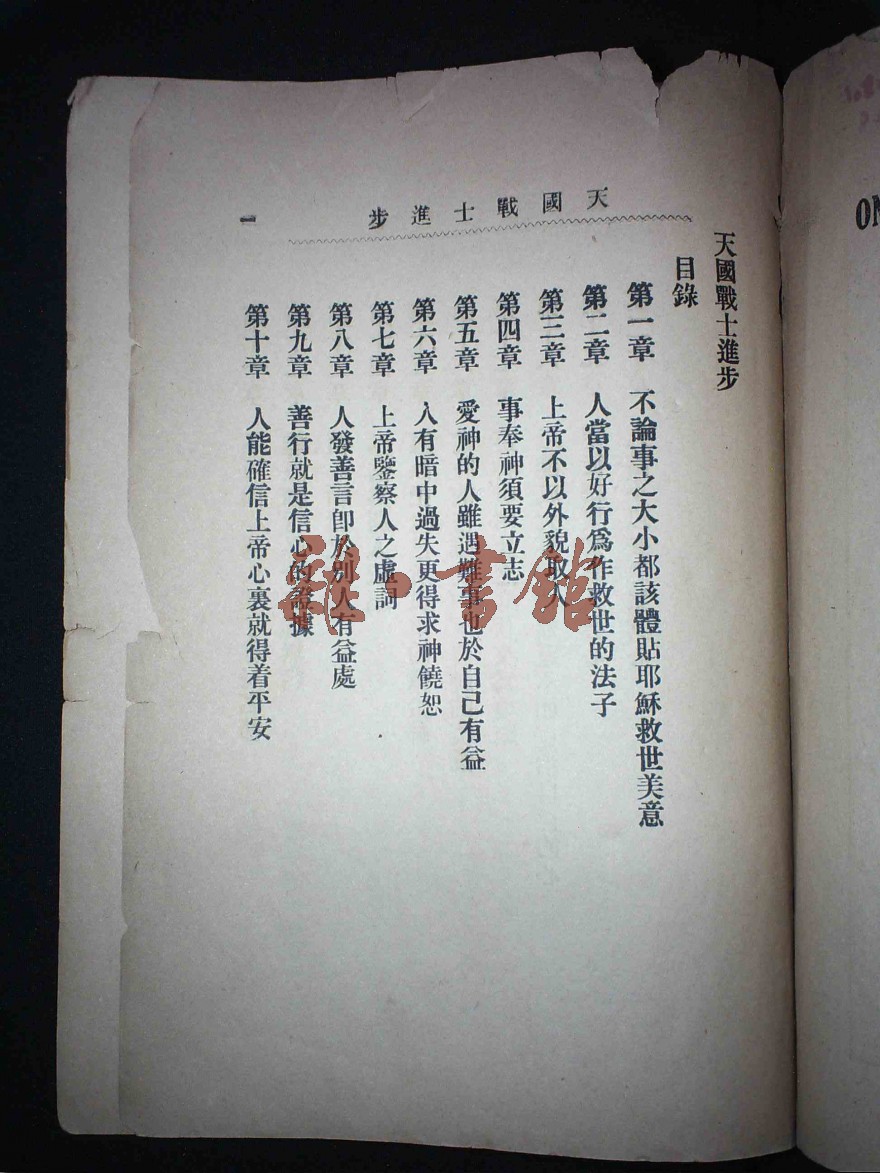 天國戰士進步
一
天國戰士進步
目錄
第一章 不論事之大小都該體貼耶穌救世美意
第二章 人當以好行爲作救世的法子
第三章 上帝不以外貌取人
第四章 事奉神須要立志
第五章 愛神的人雖遇難事也於自己有益
第六章 人有暗中過失更得求神饒恕
第七章 上帝鑒察人之虛詞
第八章 人發善言卽於別人有益處
第九章 善行就是信心的證據
第十章 人能確信上帝心裏就得着平安
ON
書館